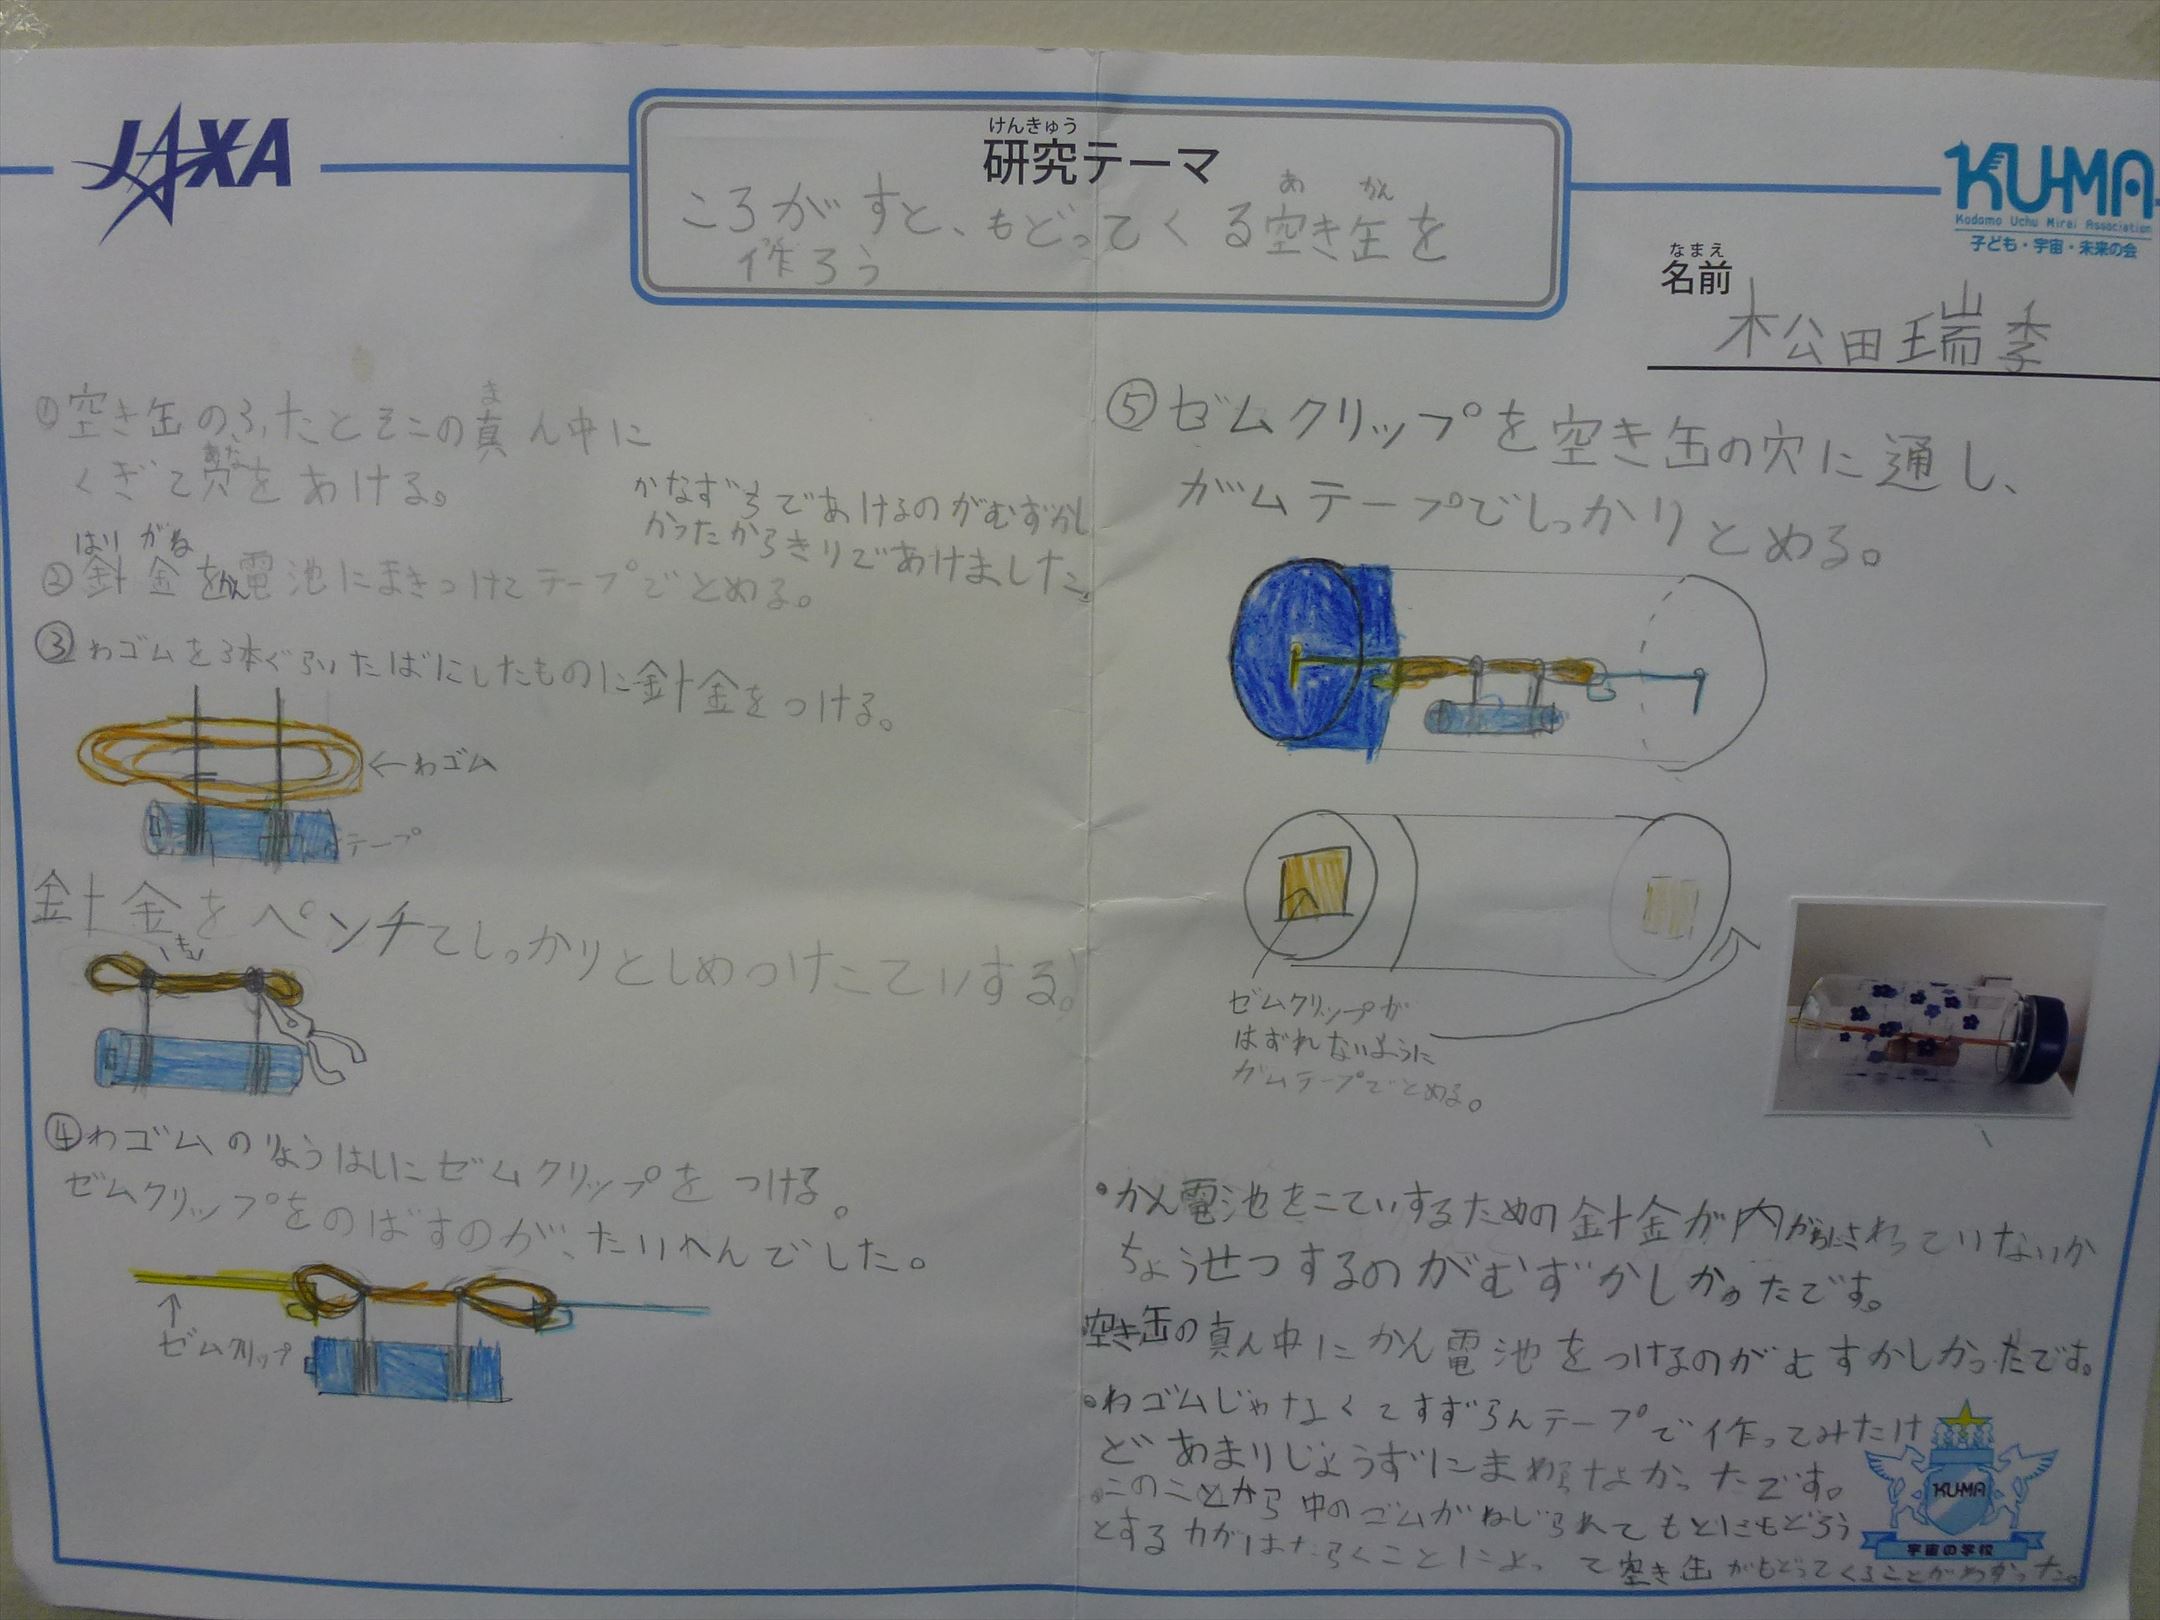 JAXA
けんきゅう
研究テーマ
あ かん
ころがすと、もどってくる空き缶を
作ろう
KU-MA
Kodomo Uchu Mirai Association
子ども・宇宙・未来の会
なまえ
名前
松田瑞季
ま
①空き缶のふたとそこの真ん中に
あな
くぎで穴をあける。
かなずちであけるのがむずかし
かったからきりであけました。
はり がね
②針金をかん電池にまきつけてテープでとめる。
③わゴムを3本ぐらいたばにしたものに針金をつける。
←わゴム
テープ
針金をペンチでしっかりとしめつけこていする。
④わゴムのりょうはしにゼムクリップをつける。
ゼムクリップをのばすのが、たいへんでした。
↑
ゼムクリップ
⑤ゼムクリップを空き缶の穴に通し、
ガムテープでしっかりとめる。
ゼムクリップが
はずれないように
ガムテープでとめる。
・かん電池をこていするための針金が内がわにさわっていないか
ちょうせつするのがむずかしかったです。
・空き缶の真ん中にかん電池をつけるのがむずかしかったです。
・わゴムじゃなくてすずらんテープで作ってみたけ
どあまりじょうずにまわらなかったです。
・このことから中のゴムがねじられてもとにもどろう
とする力がはたらくことによって空き缶がもどってくることがわかった。
KU-MA
宇宙の学校